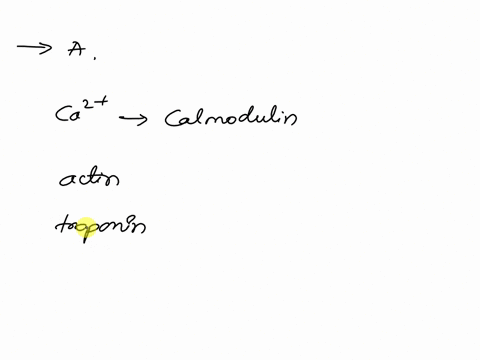 → A.
Ca²⁺ → Calmodulin
actin
troponin